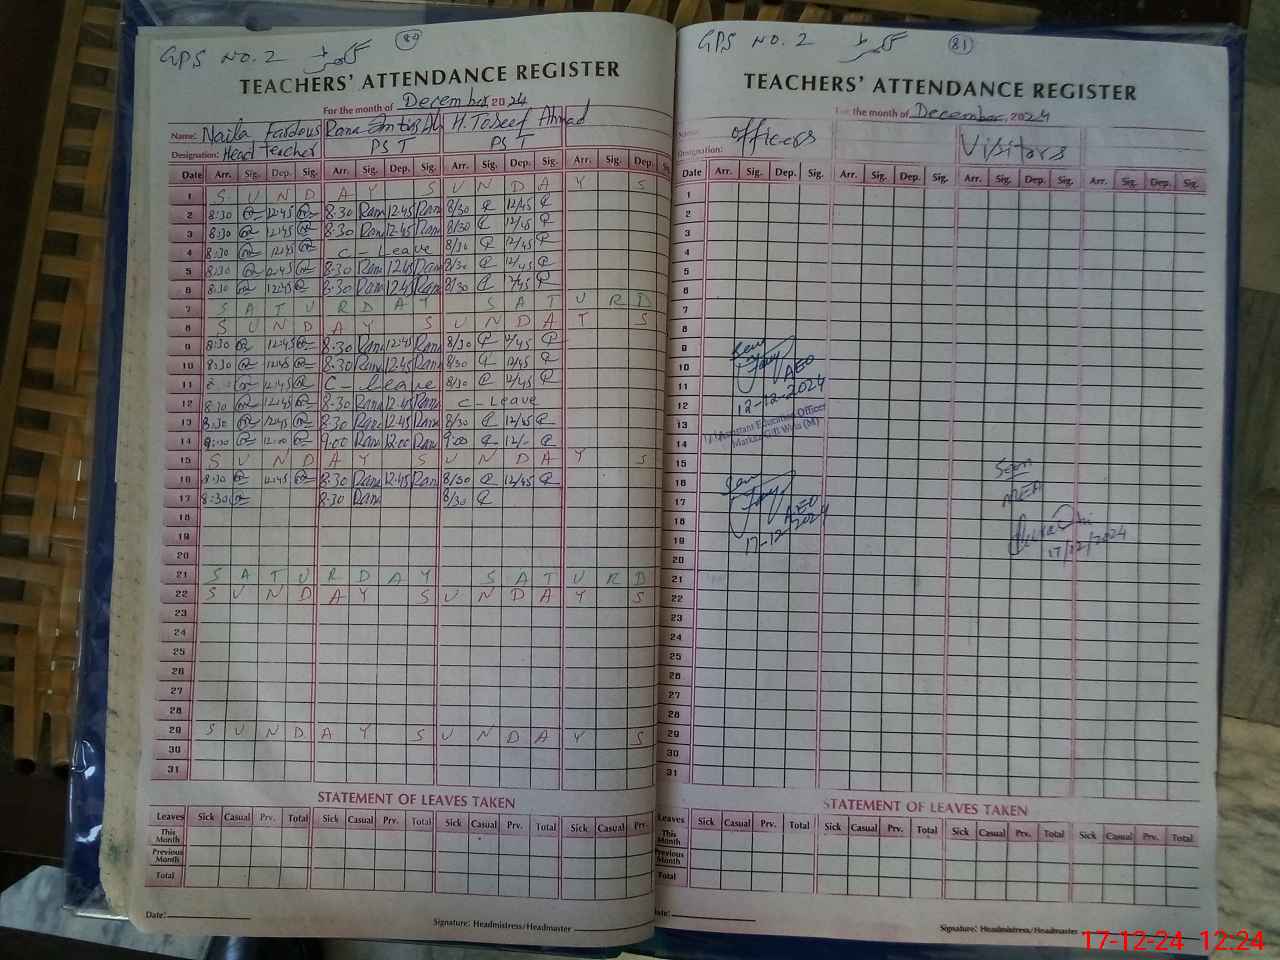 GPS NO. 2
80
TEACHERS' ATTENDANCE REGISTER
For the month of December, 2024
Name: Naila Fardous Rana H. Toseef Ahmad
Designation: Head teacher PST PST
Date Arr. Sig. Dep. Sig. Arr. Sig. Dep. Sig. Arr. Sig. Dep. Sig. Arr. Sig. Dep.
1 S U N D A Y S U N D A Y S
2 8:30 12:45 8:30 Rana 12:45 Rana 8/30 12/45
3 8:30 12:45 8:30 Rana 12:45 Rana 8/30 12/45
4 8:30 12:45 C - Leave 8/30 12/45
5 8:30 12:45 8:30 Rana 12:45 Rana 8/30 12/45
6 8:30 12:45 8:30 Rana 12:45 Rana 8/30 12/45
7 S A T U R D A Y S A T U R D
8 S U N D A Y S U N D A Y S
9 8:30 12:45 8:30 Rana 12:45 Rana 8/30 12/45
10 8:30 12:45 8:30 Rana 12:45 Rana 8/30 12/45
11 12:45 C - Leave 8/30 12/45
12 8:30 12:45 8:30 Rana 12:45 Rana C - Leave
13 8:30 12:45 8:30 Rana 12:45 Rana 8/30 12/45
14 9:30 12:00 9:00 Rana 12:00 Rana 9:00 12/-
15 S U N D A Y S U N D A Y S
16 8:30 12:45 8:30 Rana 12:45 Rana 8/30 12/45
17 8:30 8:30 Rana 8/30
18
19
20
21 S A T U R D A Y S A T U R D
22 S U N D A Y S U N D A Y S
23
24
25
26
27
28
29 S U N D A Y S U N D A Y S
30
31
STATEMENT OF LEAVES TAKEN
Leaves Sick Casual Prv. Total Sick Casual Prv. Total Sick Casual Prv. Total Sick Casual Prv.
This Month
Previous Month
Total
Date:
Signature: Headmistress/Headmaster
GPS NO. 2
81
TEACHERS' ATTENDANCE REGISTER
For the month of December, 2024
Name: Officers Visitors
Designation:
Date Arr. Sig. Dep. Sig. Arr. Sig. Dep. Sig. Arr. Sig. Dep. Sig. Arr. Sig. Dep. Sig.
1
2
3
4
5
6
7
8
9
10
11
12
13
14
15
16
17
18
19
20
21
22
23
24
25
26
27
28
29
30
31
Seen
AEO
12-12-2024
Assistant Education Officer
Markaz (M)
Seen
AEO
17-12-2024
Seen
MEA
17/12/2024
STATEMENT OF LEAVES TAKEN
Leaves Sick Casual Prv. Total Sick Casual Prv. Total Sick Casual Prv. Total Sick Casual Prv. Total
This Month
Previous Month
Total
Date:
Signature: Headmistress/Headmaster
17-12-24 12:24